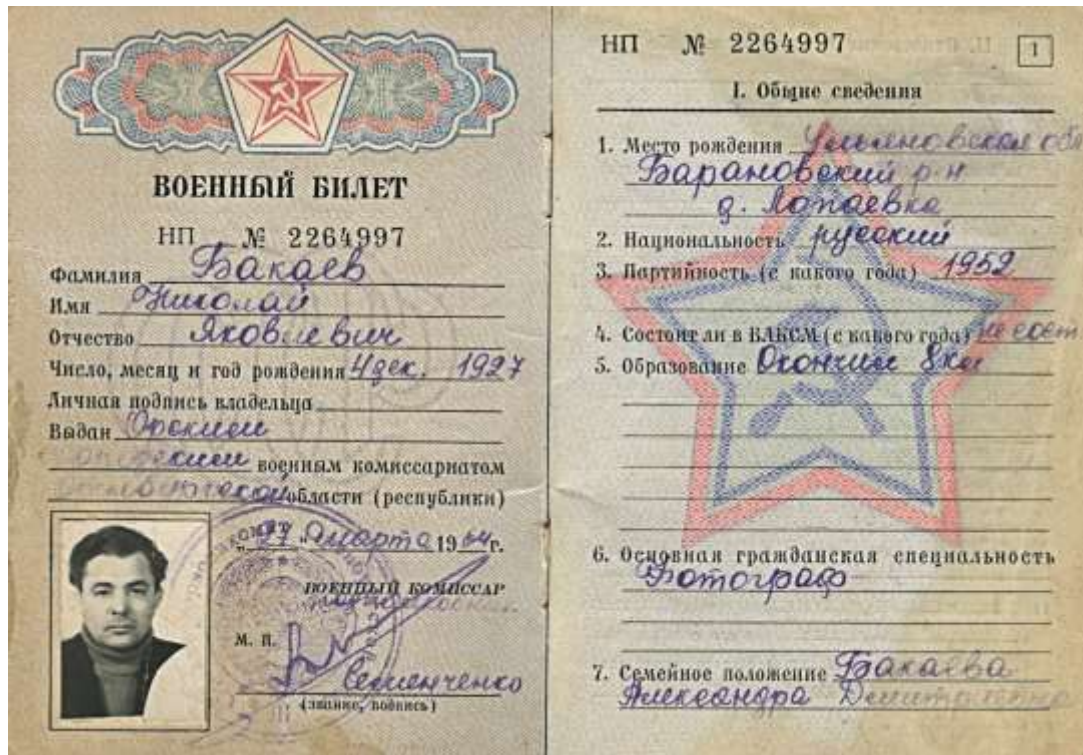 ВОЕННЫЙ БИЛЕТ
НП № 2264997
Фамилия Бакаев
Имя Николай
Отчество Яковлевич
Число, месяц и год рождения 4 дек. 1927
Личная подпись владельца
Выдан Орским
военным комиссариатом
области (республики)
" 27 " марта 1964 г.
ВОЕННЫЙ КОМИССАР
М. П.
Семенченко
(звание, подпись)
НП № 2264997
1
I. Общие сведения
1. Место рождения Ульяновская обл
Барановский р-н
д. Лопаевка
2. Национальность русский
3. Партийность (с какого года) 1952
4. Состоит ли в ВЛКСМ (с какого года) не сост
5. Образование Окончил 8 кл
6. Основная гражданская специальность
Фотограф
7. Семейное положение Бакаева
Александра Дмитриевна